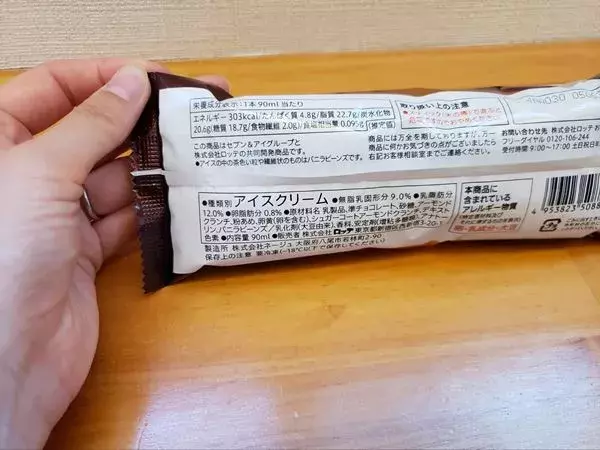 栄養成分表示:1本90ml当たり
エネルギー303kcal/たんぱく質4.8g/脂質22.7g/炭水化物
20.6g(糖質18.7g/食物繊維2.0g)/食塩相当量0.095g(推定値)
この商品はセブン&アイグループと
株式会社ロッテの共同開発商品です。
●アイスの中の茶色い粒や繊維状のものはバニラビーンズです。
取り扱い上の注意
商品には万全を期しておりますが、万一
商品に何かお気づきの点がございましたら
右記お客様相談室までご連絡ください。
お問い合わせ先 株式会社ロッテお
フリーダイヤル 0120-106-244
受付時間 9:00〜17:00 土日祝日
●種類別 アイスクリーム ●無脂乳固形分 9.0% ●乳脂肪分
12.0% ●卵脂肪分 0.8% ●原材料名 乳製品、準チョコレート、砂糖、アーモンド
クランチ、粉あめ、卵黄(卵を含む)、シュガーコートアーモンドクランチ
リン、バニラビーンズ/乳化剤(大豆由来)、香料、安定剤(増粘多糖類)
色素 ●内容量 90ml ●販売者 株式会社 ロッテ 東京都新宿区西新宿3-20-1
製造所 株式会社ネージュ 大阪府八尾市若林町2-90
保存上の注意 要冷凍(-18℃以下で保存してください)
本商品に
含まれている
アレルギー物質
卵・乳成分・大豆
4 953823 508